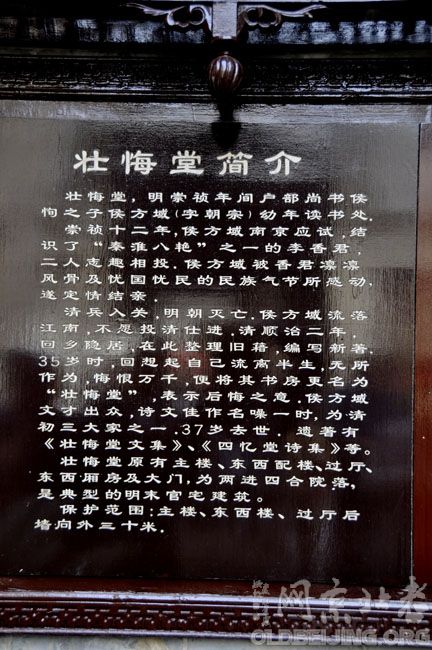 壮悔堂简介
壮悔堂，明崇祯年间户部尚书侯
恂之子侯方域(字朝宗)幼年读书处.
崇祯十二年,侯方域南京应试,结
识了“秦淮八艳”之一的李香君,
二人志趣相投.侯方域被香君凛凛
风骨及忧国忧民的民族气节所感动,
遂定情结亲.
清兵入关,明朝灭亡.侯方域流落
江南,不愿投清仕进,清顺治二年,
回乡隐居,在此整理旧籍,编写新著.
35岁时,回想起自己流离半生,无所
作为,悔恨万千,便将其书房更名为
“壮悔堂”,表示后悔之意.侯方域
文才出众,诗文佳作名噪一时,为清
初三大家之一.37岁去世.遗著有
《壮悔堂文集》、《四忆堂诗集》等。
壮悔堂原有主楼、东西配楼、过厅、
东西厢房及大门,为两进四合院落,
是典型的明末官宅建筑。
保护范围:主楼、东西楼、过厅后
墙向外三十米.
老北京网
OLDBEIJING.ORG